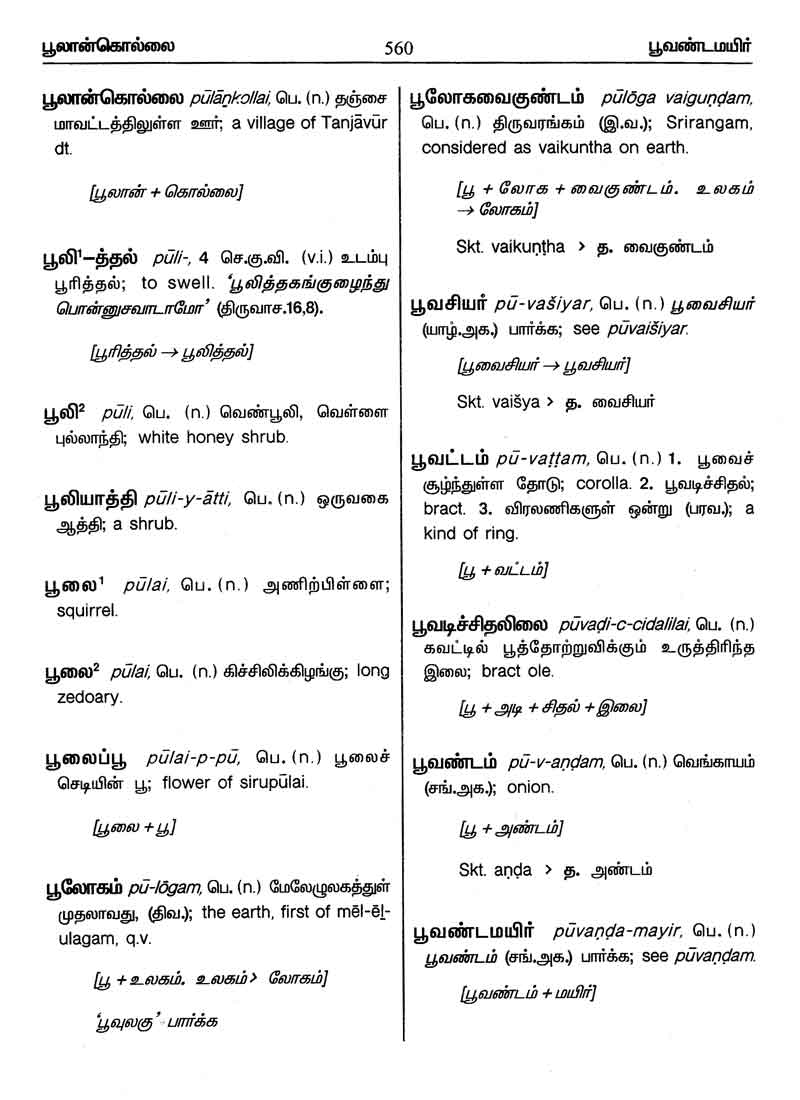 பூலான்கொல்லை 560 பூவண்டமயிர்
பூலான்கொல்லை pūlāṉkollai, பெ. (n.) தஞ்சை
மாவட்டத்திலுள்ள ஊர்; a village of Tanjāvūr
dt.
[பூலான் + கொல்லை]
பூலி¹–த்தல் pūli-, 4 செ.கு.வி. (v.i.) உடம்பு
பூரித்தல்; to swell. ‘பூலித்தகங்குழைந்து
பொன்னுசவாடாமோ’ (திருவாச.16,8).
[பூரித்தல் → பூலித்தல்]
பூலி² pūli, பெ. (n.) வெண்பூலி, வெள்ளை
புல்லாந்தி; white honey shrub.
பூலியாத்தி pūli-y-ātti, பெ. (n.) ஒருவகை
ஆத்தி; a shrub.
பூலை¹ pūlai, பெ. (n.) அணிற்பிள்ளை;
squirrel.
பூலை² pūlai, பெ. (n.) கிச்சிலிக்கிழங்கு; long
zedoary.
பூலைப்பூ pūlai-p-pū, பெ. (n.) பூலைச்
செடியின் பூ; flower of sirupūlai.
[பூலை + பூ]
பூலோகம் pū-lōgam, பெ. (n.) மேலேழுலகத்துள்
முதலாவது, (திவ.); the earth, first of mēl-ēḻ-
ulagam, q.v.
[பூ + உலகம். உலகம் > லோகம்]
‘பூவுலகு’ பார்க்க
பூலோகவைகுண்டம் pūlōga vaiguṇḍam,
பெ. (n.) திருவரங்கம் (இ.வ.); Srirangam,
considered as vaikuntha on earth.
[பூ + லோக + வைகுண்டம். உலகம்
→ லோகம்]
Skt. vaikuṇṭha > த. வைகுண்டம்
பூவசியர் pū-vašiyar, பெ. (n.) பூவைசியர்
(யாழ்.அக.) பார்க்க; see pūvaišiyar.
[பூவைசியர் → பூவசியர்]
Skt. vaišya > த. வைசியர்
பூவட்டம் pū-vaṭṭam, பெ. (n.) 1. பூவைச்
சூழ்ந்துள்ள தோடு; corolla. 2. பூவடிச்சிதல்;
bract. 3. விரலணிகளுள் ஒன்று (பரவ.); a
kind of ring.
[பூ + வட்டம்]
பூவடிச்சிதலிலை pūvaḍi-c-cidalilai, பெ. (n.)
கவட்டில் பூத்தோற்றுவிக்கும் உருத்திரிந்த
இலை; bract ole.
[பூ + அடி + சிதல் + இலை]
பூவண்டம் pū-v-aṇḍam, பெ. (n.) வெங்காயம்
(சங்.அக.); onion.
[பூ + அண்டம்]
Skt. aṇḍa > த. அண்டம்
பூவண்டமயிர் pūvaṇḍa-mayir, பெ. (n.)
பூவண்டம் (சங்.அக.) பார்க்க; see pūvaṇḍam.
[பூவண்டம் + மயிர்]